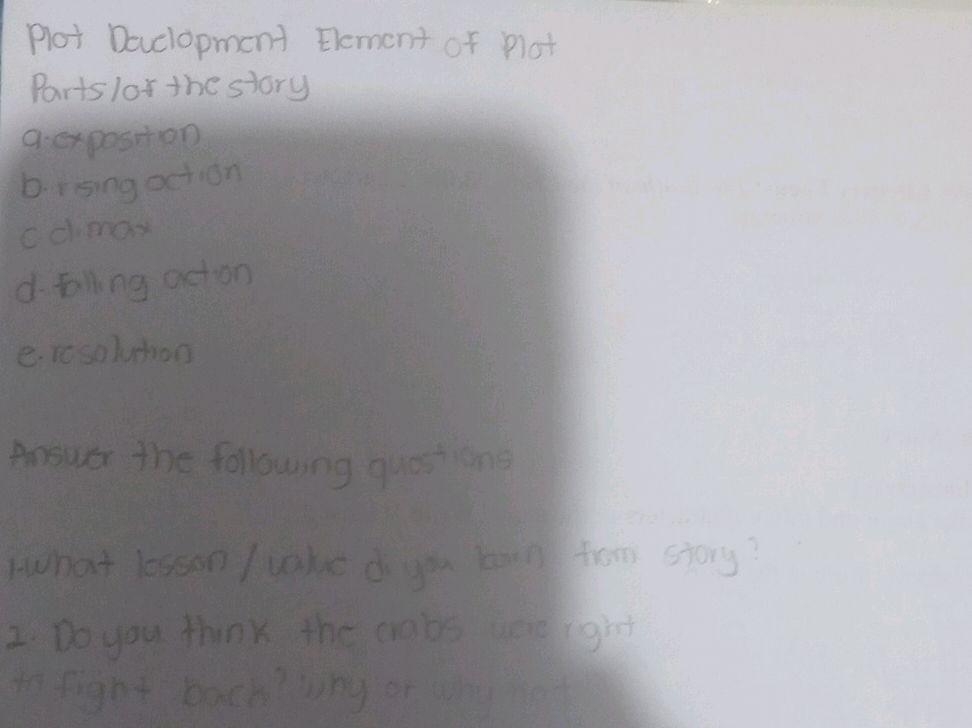 Plot Development Element of Plot
Parts/of the story
a. exposition
b. rising action
c climax
d. falling action
e. resolution
Answer the following questions
1. What lesson / value di you learn from story?
2. Do you think the crabs were right
to fight back? Why or why not